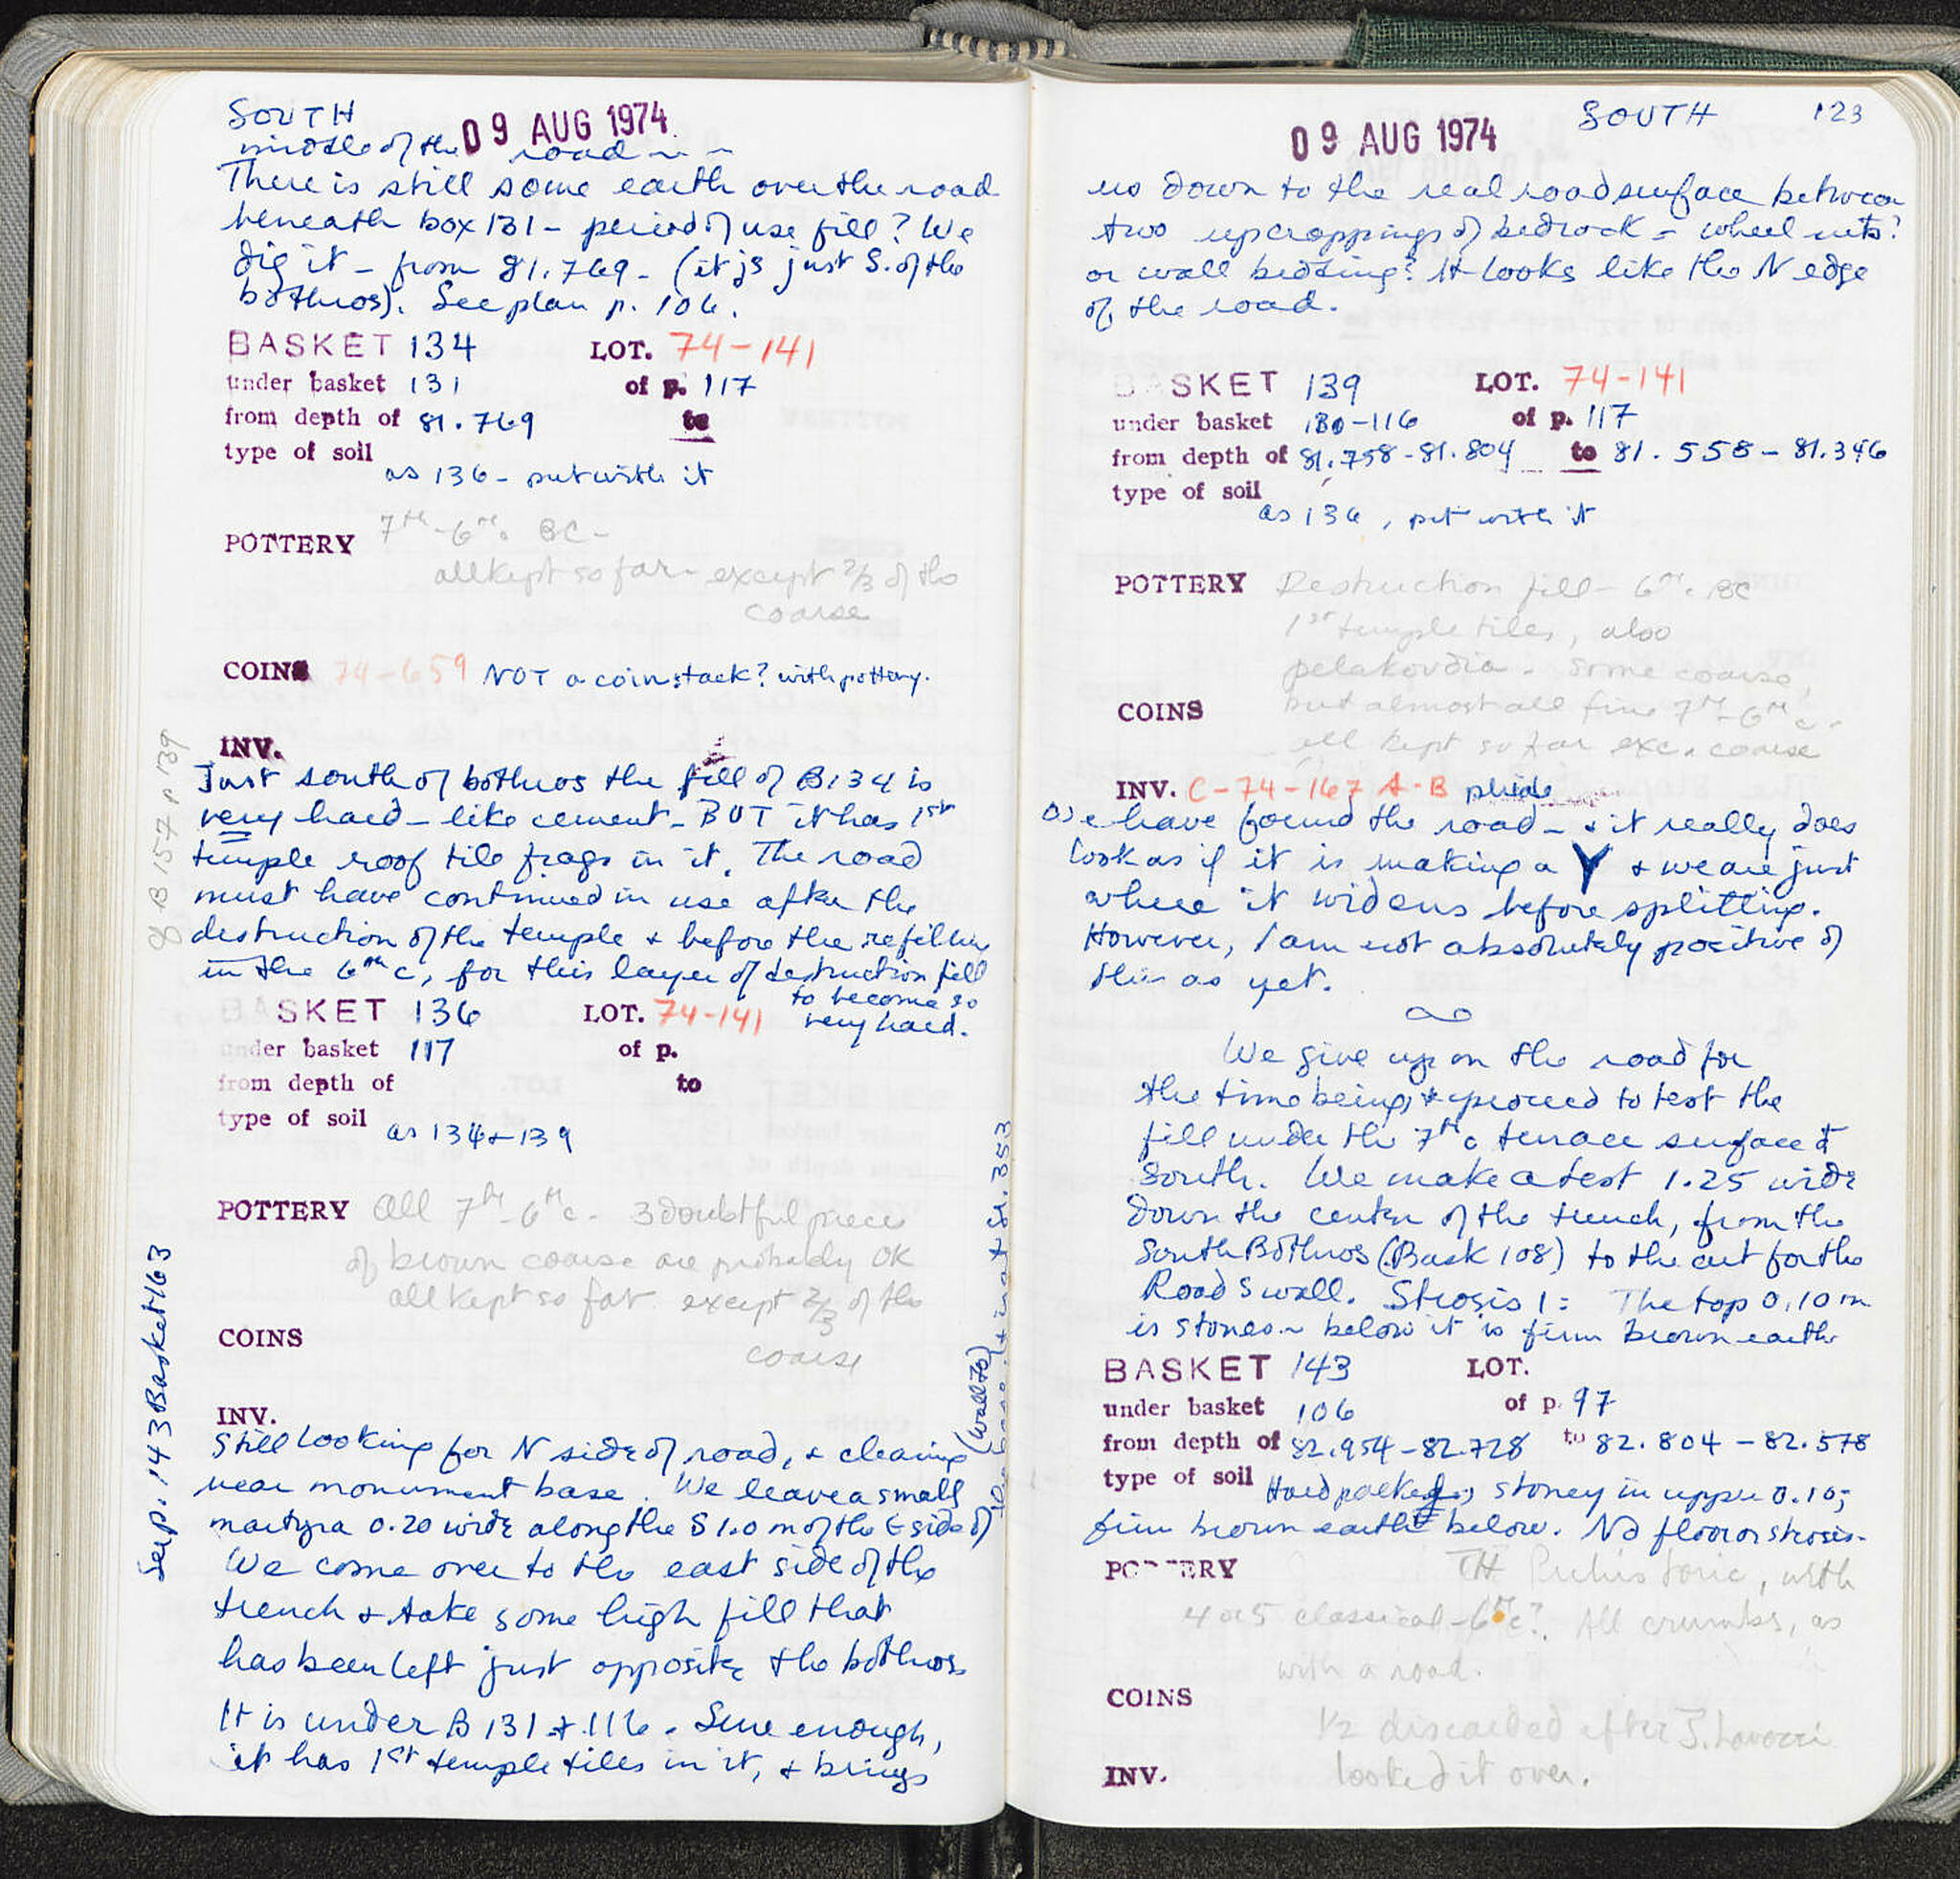 SOUTH
09 AUG 1974
middle of the road ~ ~
There is still some earth over the road
beneath box 131 - period of use fill? We
dig it - from 81.769 - (it is just S. of the
bothros). See plan p. 106.
BASKET 134 LOT. 74-141
under basket 131 of p. 117
from depth of 81.769 to
type of soil
as 136 - put with it
POTTERY 7th - 6th c. BC -
all kept so far - except 2/3 of the
coarse
COINS 74-659 NOT a coin: tack? with pottery.
INV.
Just south of bothros the fill of B134 is
very hard - like cement - BUT it has 1st
temple roof tile frags in it. The road
must have continued in use after the
destruction of the temple + before the refilling
in the 6th c, for this layer of destruction fill
to become so
very hard.
B 157 p 139
BASKET 136 LOT. 74-141
under basket 117 of p.
from depth of to
type of soil
as 134 + 139
POTTERY All 7th - 6th c. 3 doubtful pieces
of brown coarse are probably OK
all kept so far except 2/3 of the
coarse
COINS
INV.
Still looking for N side of road, + clearing
near monument base. We leave a small
martyra 0.20 wide along the S 1.0 m of the E side of
(wall 70)
We come over to the east side of the
trench + take some high fill that
has been left just opposite the bothros.
It is under B 131 + 116. Sure enough,
it has 1st temple tiles in it, + brings
See p. 143 Basket 163
09 AUG 1974 SOUTH 123
us down to the real road surface between
two upcroppings of bedrock = wheel ruts?
or wall bedding? It looks like the N edge
of the road.
BASKET 139 LOT. 74-141
under basket 130-116 of p. 117
from depth of 81.758-81.804 to 81.558 - 81.346
type of soil
as 136, put with it
POTTERY Destruction fill - 6th c. BC
1st temple tiles, also
pelakoudia - some coarse,
but almost all fine 7th - 6th c.
all kept so far exc. coarse
COINS
INV. C-74-167 A-B phiale
We have found the road - + it really does
look as if it is making a Y + we are just
where it widens before splitting.
However, I am not absolutely positive of
this as yet.
We give up on the road for
the time being, + proceed to test the
fill under the 7th c terrace surface to
South. We make a test 1.25 wide
down the center of the trench, from the
South Bothros (Bask 108) to the cut for the
Road S wall. Strosis 1: The top 0.10 m
is stones ~ below it is firm brown earth
BASKET 143 LOT.
under basket 106 of p. 97
from depth of 82.954 - 82.728 to 82.804 - 82.578
type of soil Hard packed, stoney in upper 0.10;
firm brown earth below. No floor or strosis.
POTTERY TH Prehistoric, with
4 or 5 classical - 6th c? All crumbs, as
with a road.
COINS
1/2 discarded after J. Lavezzi
INV. looked it over.